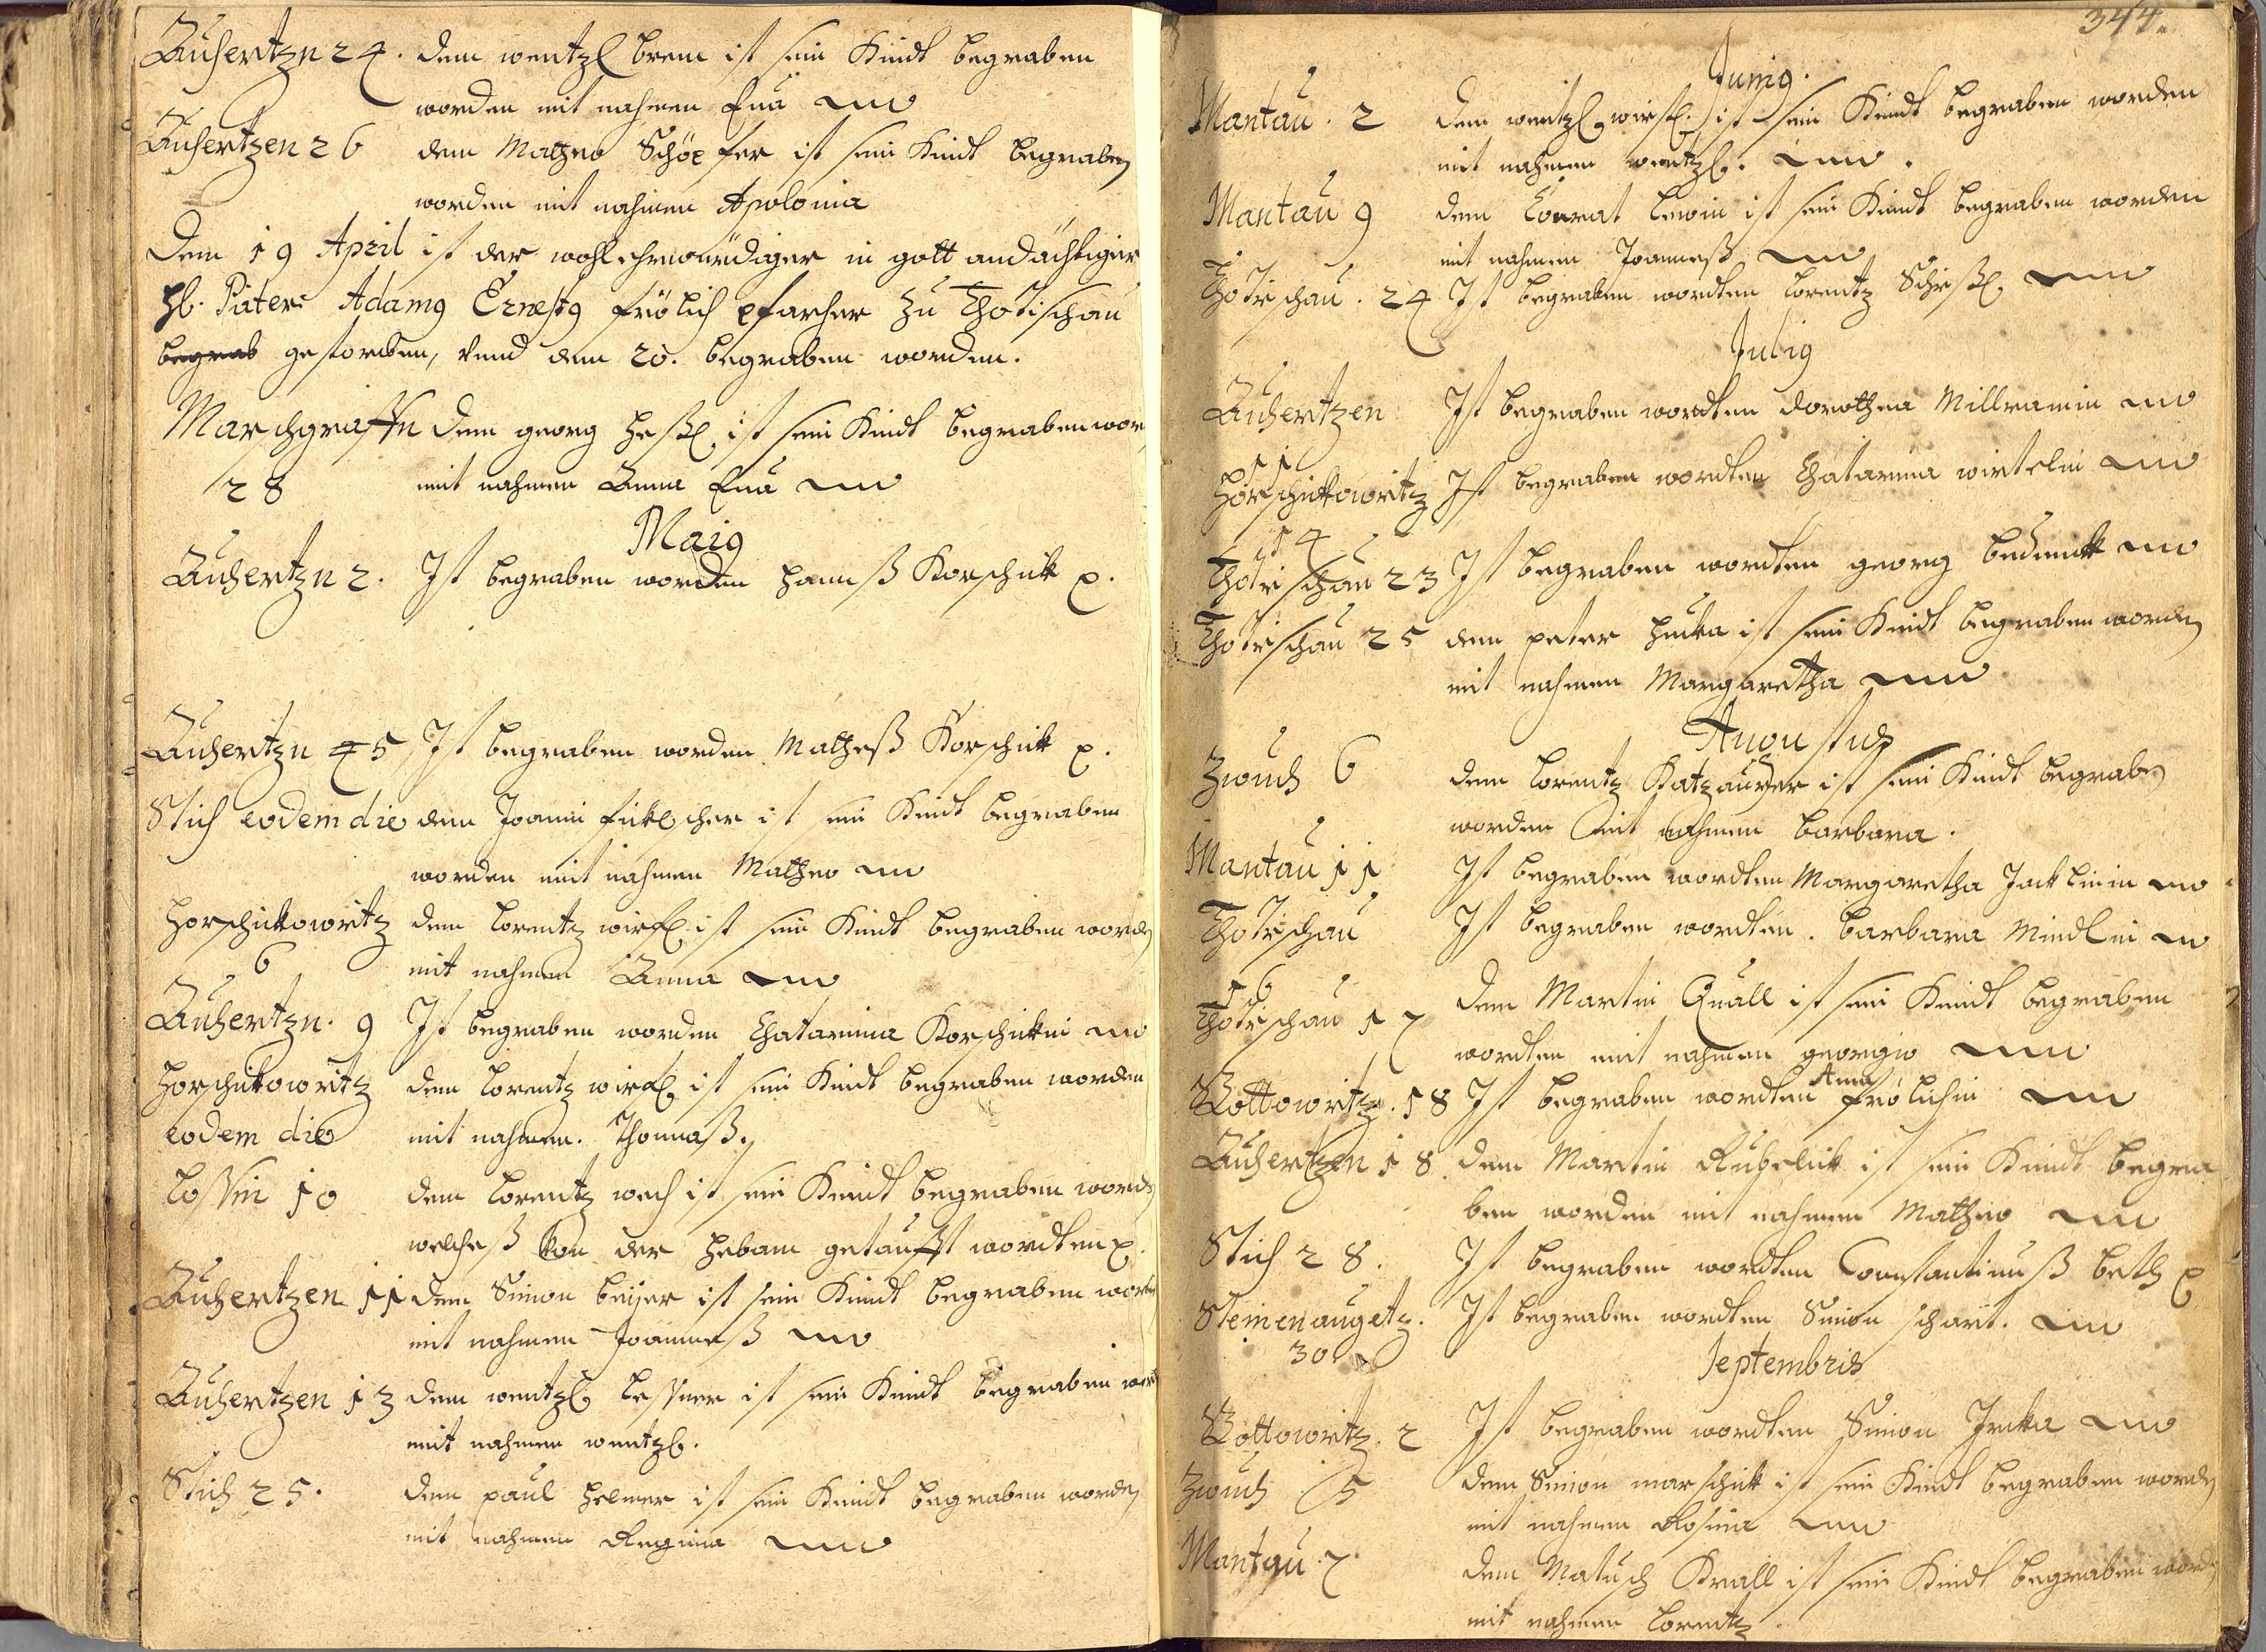 Auhertzn 24. dem wentzl brem ist sein Kindt begraben
worden mit nahmen Eua
Auhertzen 26 dem Matheo Schöpfer ist sein Kindt begraben
worden mit nahmen Apolonia
Dem 19 April ist der wohlehrwürdiger in gott andächtiger
H. Pater Adamg Ernestg Frölich pfarher zu Chotischau
begrab gestorben, vnnd den 20. begraben worden.
Marschgraffn dem georg Heßl ist sein Kindt begraben wor
28 mit nahmen Anna Eua
Maig
Auhertzn 2. Ist begraben worden hannß Korschik p.
Auhertzn 5 Ist begraben worden Matheß Korschik p.
Stich eodem die dem Joanni ist sein Kindt begraben
worden mit nahmen Matheo
Horschikowitz dem lorentz wirfl ist sein Kindt begraben worden
6 mit nahmen Anna
Auhertzn. 9 Ist begraben worden Chatarina Korschikin
Horschikowitz dem lorentz wirfl ist sein Kindt begraben worden
eodem die mit nahmen. Thomaß.
Lossin 10 dem lorentz wech ist sein Kindt begraben worden
welcheß von der hebam getaufft wordten p.
Auhertzen 11 dem Simon beijer ist sein Kindt begraben worden
mit nahmen Joanneß
Auhertzen 13 dem wentzl lessner ist sein Kindt begraben wor
mit nahmen wentzl.
Stich 25. dem paul helmer ist sein Kindt begraben worden
mit nahmen Regina
344.
Junig.
Mantau. 2 dem wentzl wirfl ist sein Kindt begraben worden
mit nahmen wentzl.
Mantau 9 dem Conrat lewin ist sein Kindt begraben worden
mit nahmen Joanneß
Chotischau. 24 Ist begraben wordten lorentz Schißl
Julig
Auhertzen Ist begraben wordten dorothea Millramin
11
Horschikowitz Ist begraben wordten Chatarina wirtelin
14
Chotischau 23 Ist begraben wordten georg
Chotischau 25 dem peter huka ist sein Kindt begraben worden
mit nahmen Margaretha
Augustus
Zwuch 6 dem lorentz Katzaurer ist sein Kindt begraben
worden mit nahmen barbara.
Mantau 11 Ist begraben wordten Margaretha Jacklinin
Chotischau Ist begraben wordten. barbara Mindlin
16
Chotischau 17 dem Martin Quall ist sein Kindt begraben
wordten mit nahmen georgio
Wottowitz. 18 Ist begraben wordten Anna Frölichin
Auhertzen 18 dem Martin Kuhelik ist sein Kindt begra
ben worden mit nahmen Matheo
Stich 28. Ist begraben wordten Constantinuß beth p
Steinenaugetz. Ist begraben wordten Simon schait.
30
Septembris
Wottowitz. 2 Ist begraben wordten Simon Jrcka
Zwuch 5 dem Simon marschik ist sein Kindt begraben worden
mit nahmen Rosina
Mantau. 7 dem Matusch Krall ist sein Kindt begraben worden
mit nahmen lorentz